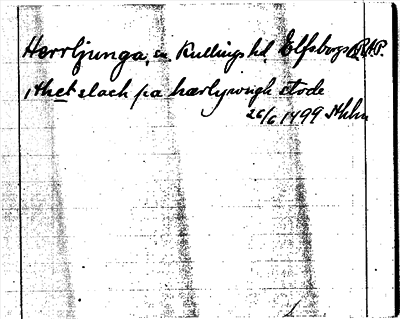 Herrljunga, sn Kullings hd, Elfsborgs
, thet slach pa hærlywngh stode
26/6 1499